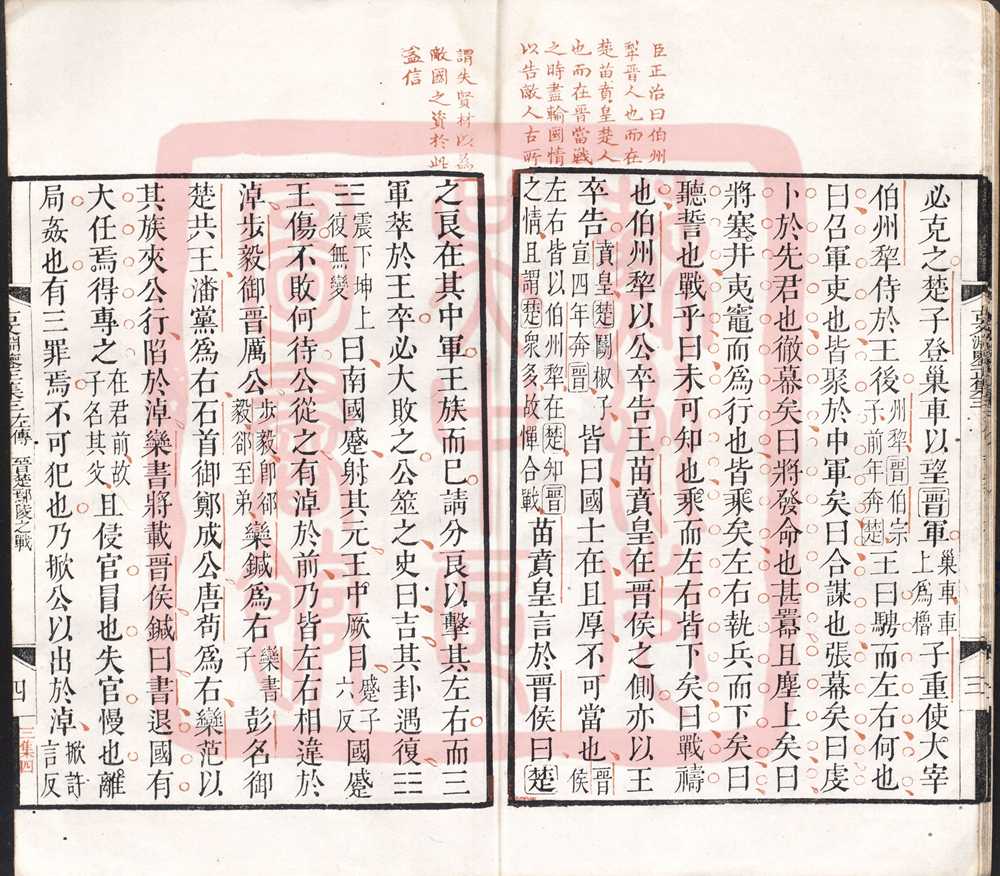 臣正治曰伯州
犁晉人也而在
楚苗賁皇楚人
也而在晉當戰
之時盡輸國情
以告敵人古所
謂失賢材以為
敵國之資於此
益信
必克之楚子登巢車以望晉軍巢車車上為櫓子重使大宰
伯州犂侍於王後州犂晉伯宗子前年奔楚王曰騁而左右何也
曰召軍吏也皆聚於中軍矣曰合謀也張幕矣曰虔
卜於先君也徹幕矣曰將發命也甚囂且塵上矣曰
將塞井夷竈而爲行也皆乘矣左右執兵而下矣曰
聽誓也戰乎曰未可知也乘而左右皆下矣曰戰禱
也伯州犂以公卒告王苗賁皇在晉侯之側亦以王
卒告賁皇楚鬬椒子宣四年奔晉皆曰國士在且厚不可當也晉侯
左右皆以伯州犂在楚知晉之情且謂楚衆多故憚合戰苗賁皇言於晉侯曰楚
之良在其中軍王族而已請分良以擊其左右而三
軍萃於王卒必大敗之公筮之史曰吉其卦遇復☷☳
震下坤上復無變曰南國䠞射其元王中厥目䠞子六反國䠞
王傷不敗何待公從之有淖於前乃皆左右相違於
淖步毅御晉厲公步毅卽郤毅郤至弟欒鍼爲右欒書子彭名御
楚共王潘黨爲右石首御鄭成公唐苟爲右欒范以
其族夾公行陷於淖欒書將載晉侯鍼曰書退國有
大任焉得專之在君前故子名其父且侵官冒也失官慢也離
局姦也有三罪焉不可犯也乃掀公以出於淖掀許言反
三
左傳 晉楚鄢陵之戰
四
三集四